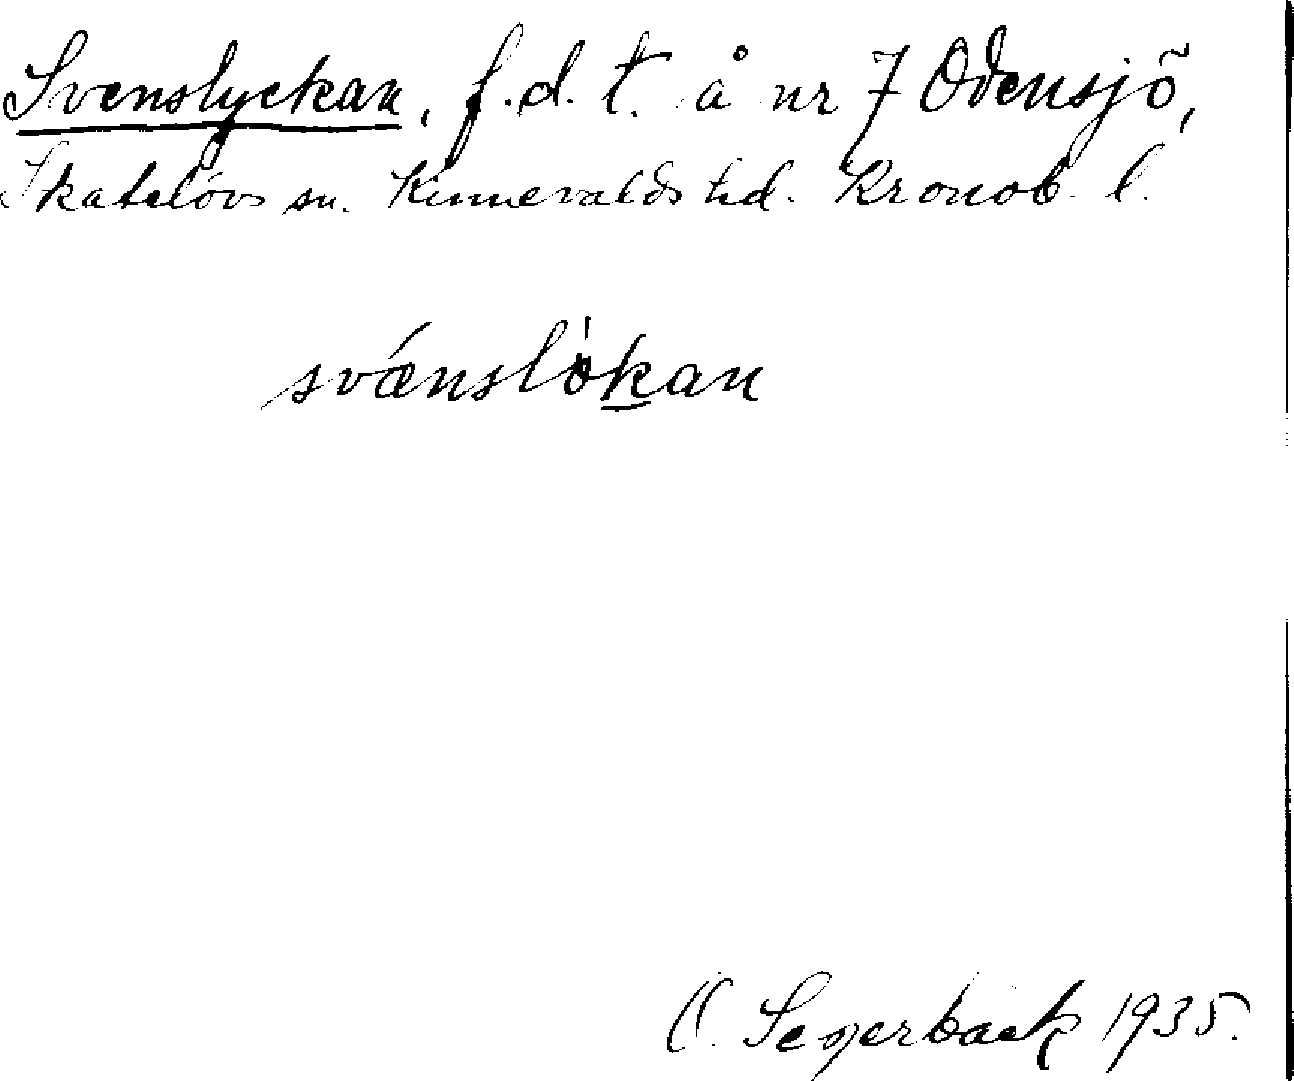 Svenslyckan, f.d. t. å nr 7 Odensjö,
Skatelövs sn. Kinnevalds hd. Kronob. l.
svǽnslökan
O. Segerbäck 1935.